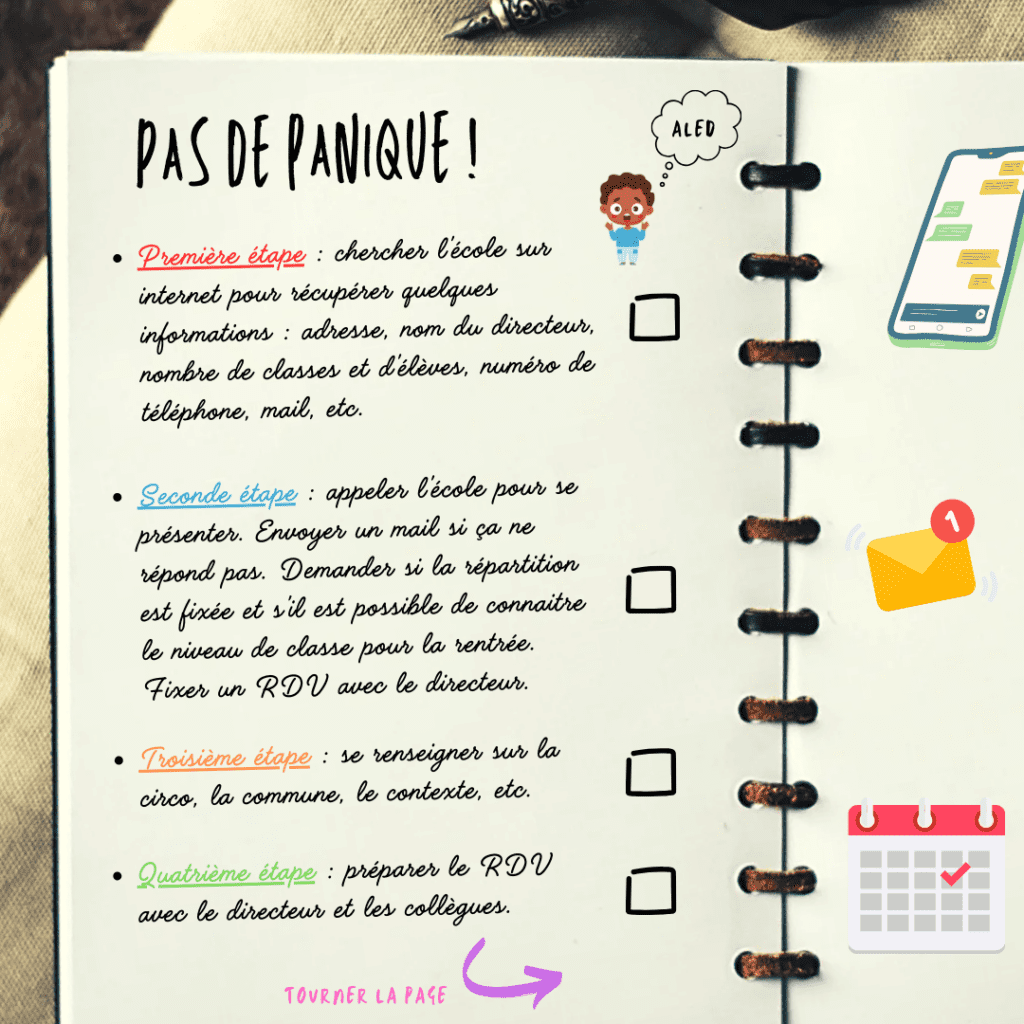 PAS DE PANIQUE !
ALED
• Première étape : chercher l'école sur
internet pour récupérer quelques
informations : adresse, nom du directeur,
nombre de classes et d'élèves, numéro de
téléphone, mail, etc.
• Seconde étape : appeler l'école pour se
présenter. Envoyer un mail si ça ne
répond pas. Demander si la répartition
est fixée et s'il est possible de connaitre
le niveau de classe pour la rentrée.
Fixer un RDV avec le directeur.
• Troisième étape : se renseigner sur la
circo, la commune, le contexte, etc.
• Quatrième étape : préparer le RDV
avec le directeur et les collègues.
TOURNER LA PAGE
1